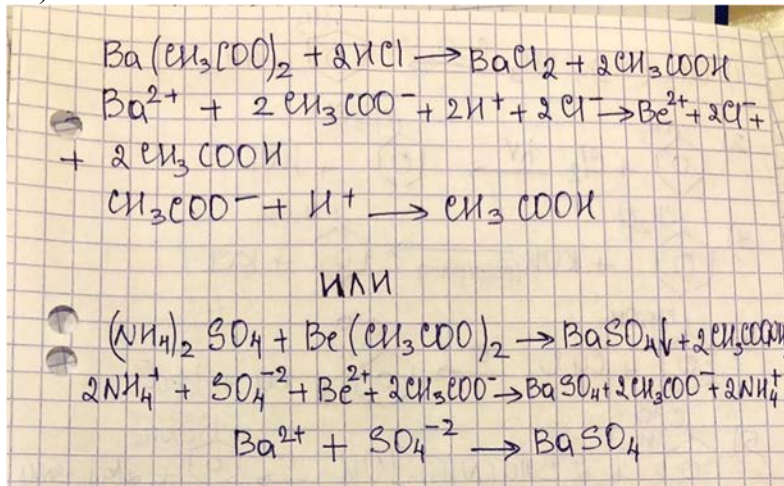 Ba(CH₃COO)₂ + 2HCl → BaCl₂ + 2CH₃COOH
Ba²⁺ + 2CH₃COO⁻ + 2H⁺ + 2Cl⁻ → Be²⁺ + 2Cl⁻ +
+ 2CH₃COOH
CH₃COO⁻ + H⁺ → CH₃COOH
или
(NH₄)₂SO₄ + Be(CH₃COO)₂ → BaSO₄↓ + 2CH₃COONH
2NH₄⁺ + SO₄⁻² + Be²⁺ + 2CH₃COO⁻ → BaSO₄ + 2CH₃COO⁻ + 2NH₄⁺
Ba²⁺ + SO₄⁻² → BaSO₄